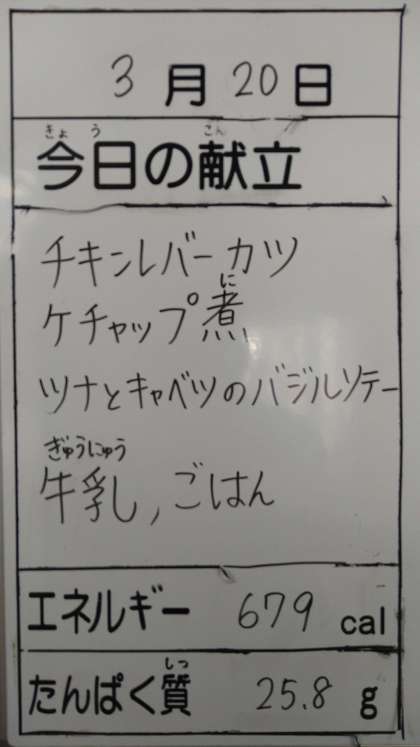 3月20日
きょう こん
今日の献立
チキンレバーカツ
に
ケチャップ煮
ツナとキャベツのバジルソテー
ぎゅうにゅう
牛乳, ごはん
エネルギー 679 cal
しつ
たんぱく質 25.8 g